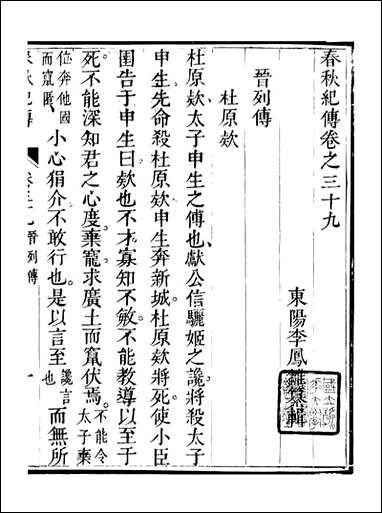 春秋紀傳卷之三十九
東陽李鳳雛纂輯
晉列傳
杜原欵
杜原欵太子申生之傅也獻公信驪姬之讒將殺太子
申生先命殺杜原欵申生奔新城杜原欵將死使小臣
圉告于申生曰欵也不才寡知不敏不能教導以至于
死不能深知君之心度棄寵求廣土而竄伏焉不能令太子棄
位奔他國而竄匿小心狷介不敢行也是以言至讒言也而無所
春秋紀傳 卷三十九晉列傳 一